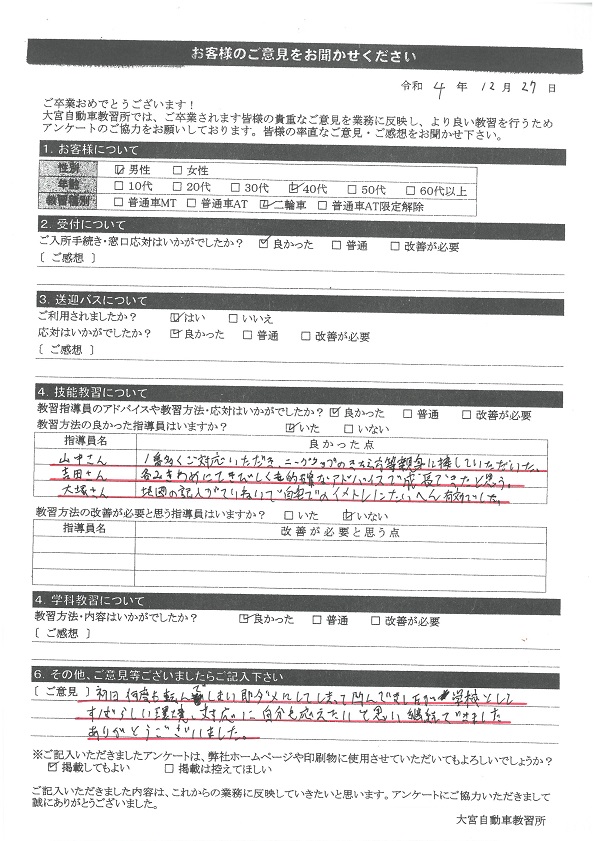 お客様のご意見をお聞かせください
令和 4 年 12 月 27 日
ご卒業おめでとうございます！
大宮自動車教習所では、ご卒業されます皆様の貴重なご意見を業務に反映し、より良い教習を行うため
アンケートのご協力をお願いしております。皆様の率直なご意見・ご感想をお聞かせ下さい。
1. お客様について
性別 ☑ 男性 □ 女性
年齢 □ 10代 □ 20代 □ 30代 ☑ 40代 □ 50代 □ 60代以上
教習種別 □ 普通車MT □ 普通車AT ☑ 二輪車 □ 普通車AT限定解除
2. 受付について
ご入所手続き・窓口応対はいかがでしたか？ ☑ 良かった □ 普通 □ 改善が必要
〔 ご感想 〕
3. 送迎バスについて
ご利用されましたか？ ☑ はい □ いいえ
応対はいかがでしたか？ ☑ 良かった □ 普通 □ 改善が必要
〔 ご感想 〕
4. 技能教習について
教習指導員のアドバイスや教習方法・応対はいかがでしたか？ ☑ 良かった □ 普通 □ 改善が必要
教習方法の良かった指導員はいますか？ ☑ いた □ いない
指導員名 良かった点
山中さん 1番多くご対応いただき、ニーグリップの 親身に接していただいた。
吉田さん きびしくも的確なアドバイスで成長できたと思う。
大塚さん 地図の記入がていねいで自宅でのイメトレにたいへん有効でした。
教習方法の改善が必要と思う指導員はいますか？ □ いた ☑ いない
指導員名 改善が必要と思う点
4. 学科教習について
教習方法・内容はいかがでしたか？ ☑ 良かった □ 普通 □ 改善が必要
〔 ご感想 〕
6. その他、ご意見等ございましたらご記入下さい
〔 ご意見 〕 初日 何度も転んでしまい 即ダメにしてしまって凹んでましたが 学校として
すばらしい環境、対応に自分も応えたいと思い継続できました
ありがとうございました。
※ご記入いただきましたアンケートは、弊社ホームページや印刷物に使用させていただいてもよろしいでしょうか？
☑ 掲載してもよい □ 掲載は控えてほしい
ご記入いただきました内容は、これからの業務に反映していきたいと思います。アンケートにご協力いただきまして
誠にありがとうございました。
大宮自動車教習所